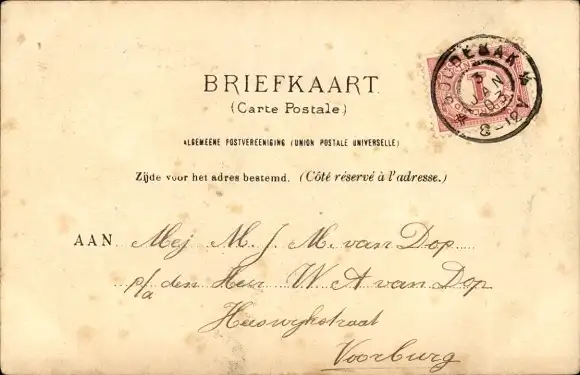 BRIEFKAART
(Carte Postale)
ALGEMEENE POSTVEREENIGING (UNION POSTALE UNIVERSELLE)
Zijde voor het adres bestemd. (Côté réservé à l'adresse.)
AAN Mej M. J. M. van Dop
p/a den Heer W A van Dop
Heeswijkstraat
Voorburg
OUDENBAK
3 JAN 03
8-12V
1